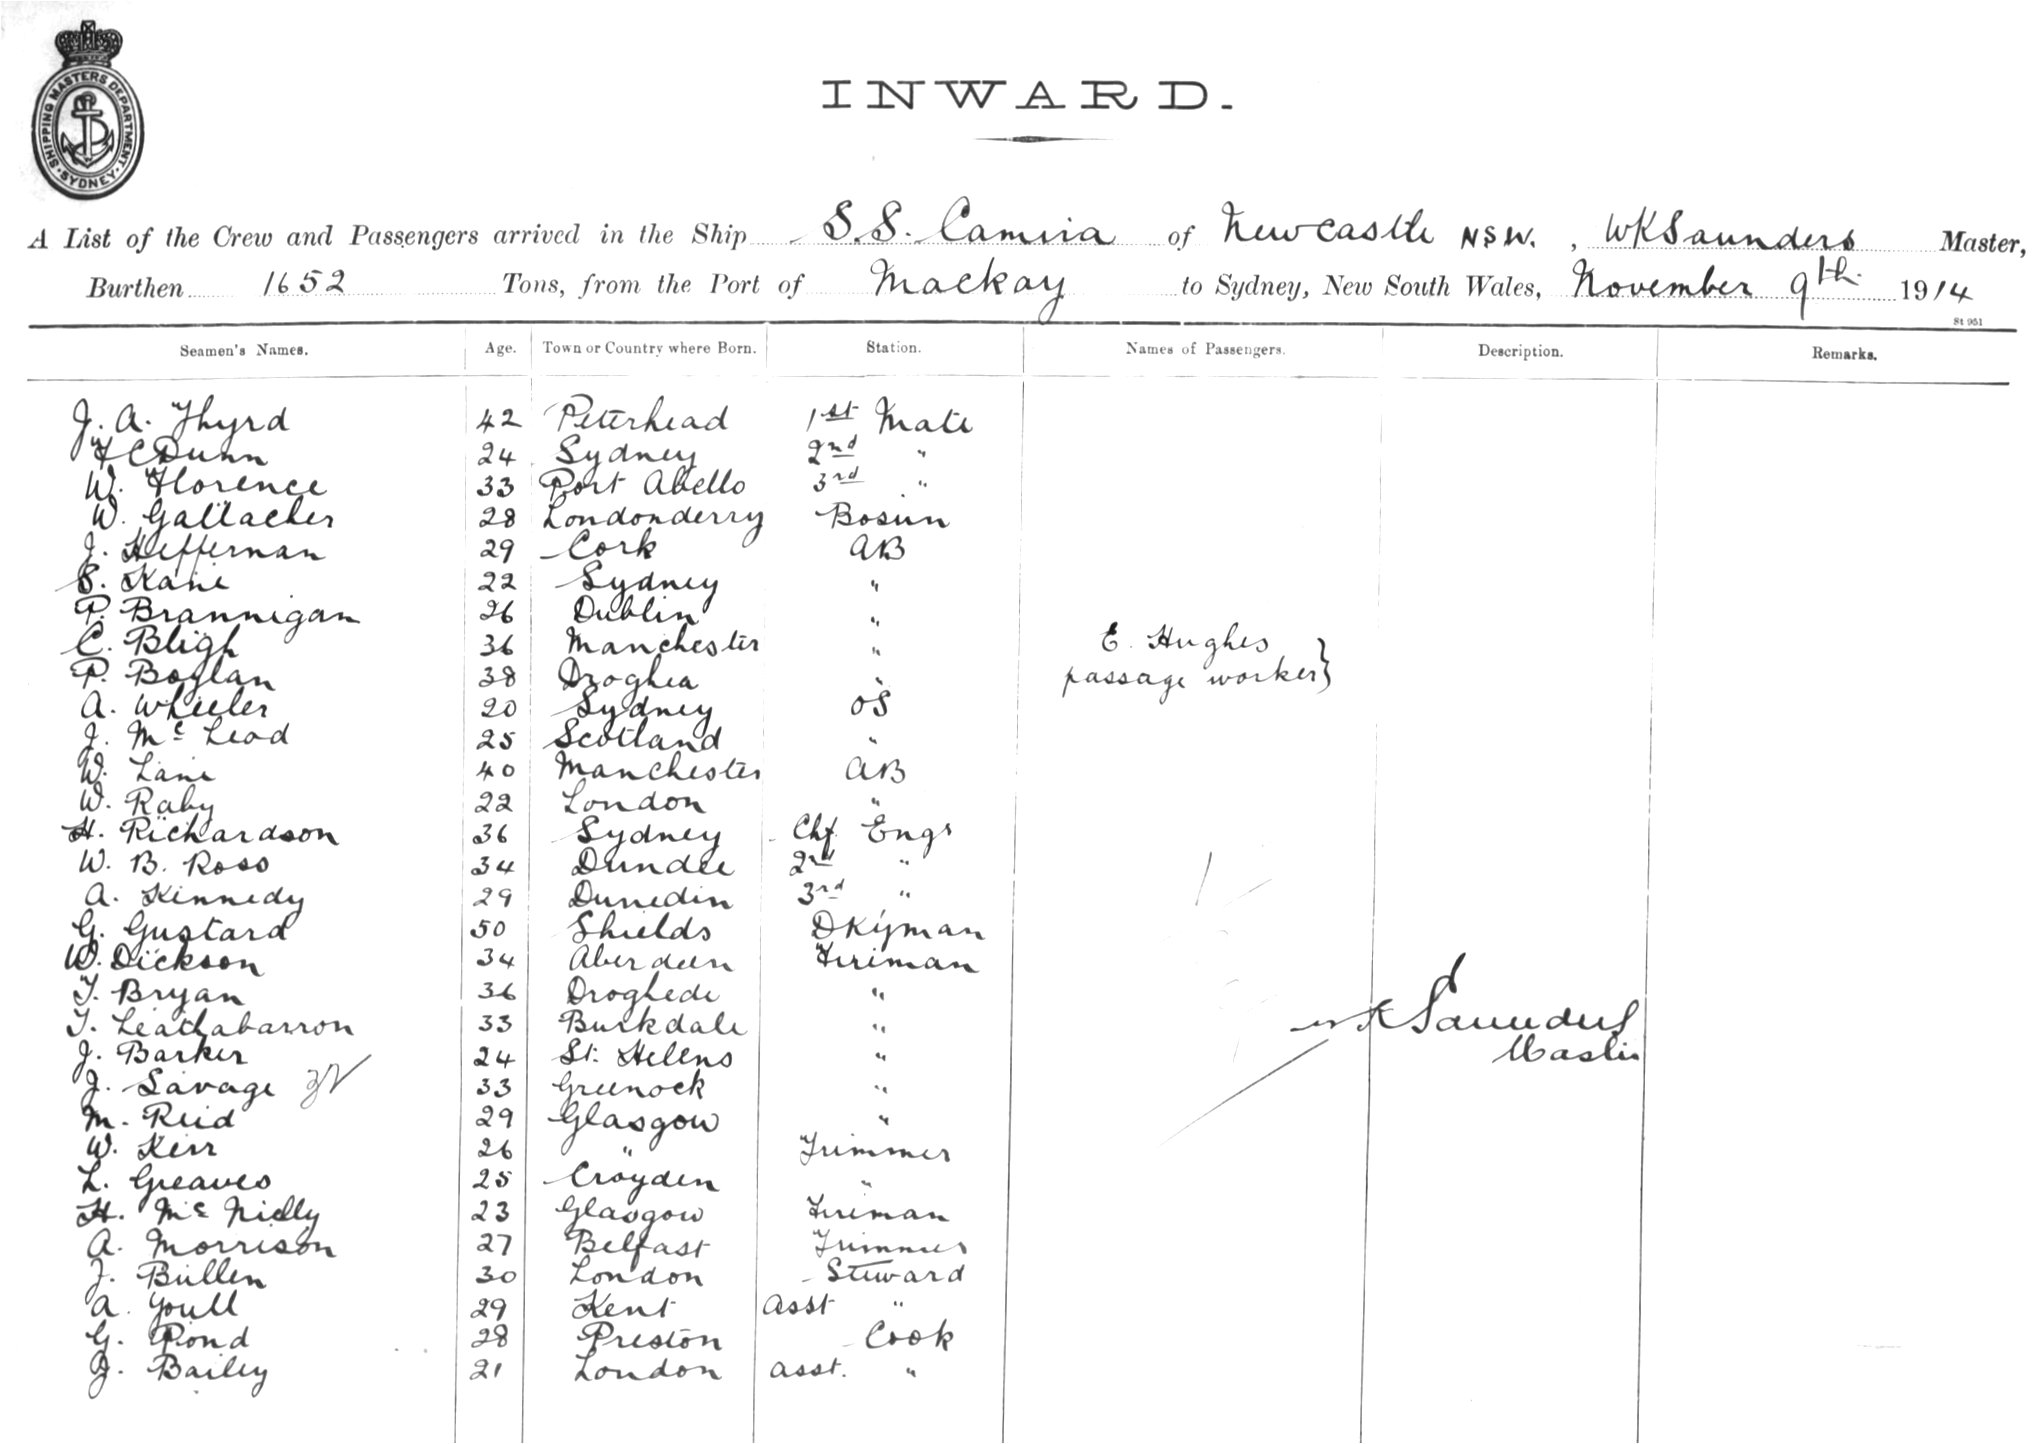 SHIPPING MASTERS DEPARTMENT
SYDNEY
INWARD.
A List of the Crew and Passengers arrived in the Ship S.S. Camira of Newcastle NSW. , WKSaunders Master,
Burthen 1652 Tons, from the Port of Mackay to Sydney, New South Wales, November 9th 1914
St 951
Seamen's Names. Age. Town or Country where Born. Station. Names of Passengers. Description. Remarks.
J. A. Thyrd 42 Peterhead 1st Mate
F C Dunn 24 Sydney 2nd "
W. Florence 33 Port Abello 3rd "
W. Gallacher 28 Londonderry Bosun
J. Heffernan 29 Cork AB
S. Kane 22 Sydney "
P. Brannigan 26 Dublin "
C. Bligh 36 Manchester " E. Hughes
P. Boylan 38 Droghea " passage worker}
A. Wheeler 20 Sydney OS
J. Mc Leod 25 Scotland "
W. Lane 40 Manchester AB
W. Raby 22 London "
H. Richardson 36 Sydney Chf Engr
W. B. Ross 34 Dundee 2nd "
A. Kennedy 29 Dunedin 3rd "
G. Gustard 50 Shields DKyman
W. Dickson 34 Aberdeen Fireman
T. Bryan 36 Droghede "
T. Leathabarron 33 Burkdale " WKSaunders
J. Barker 24 St. Helens " Master
J. Savage 33 Greenock "
M. Reid 29 Glasgow "
W. Kerr 26 " Trimmer
L. Greaves 25 Croyden "
H. Mc Nielly 23 Glasgow Fireman
A. Morrison 27 Belfast Trimmer
J. Bullen 30 London Steward
A. Youll 29 Kent Asst "
G. Pond 28 Preston Cook
J. Bailey 21 London Asst. "